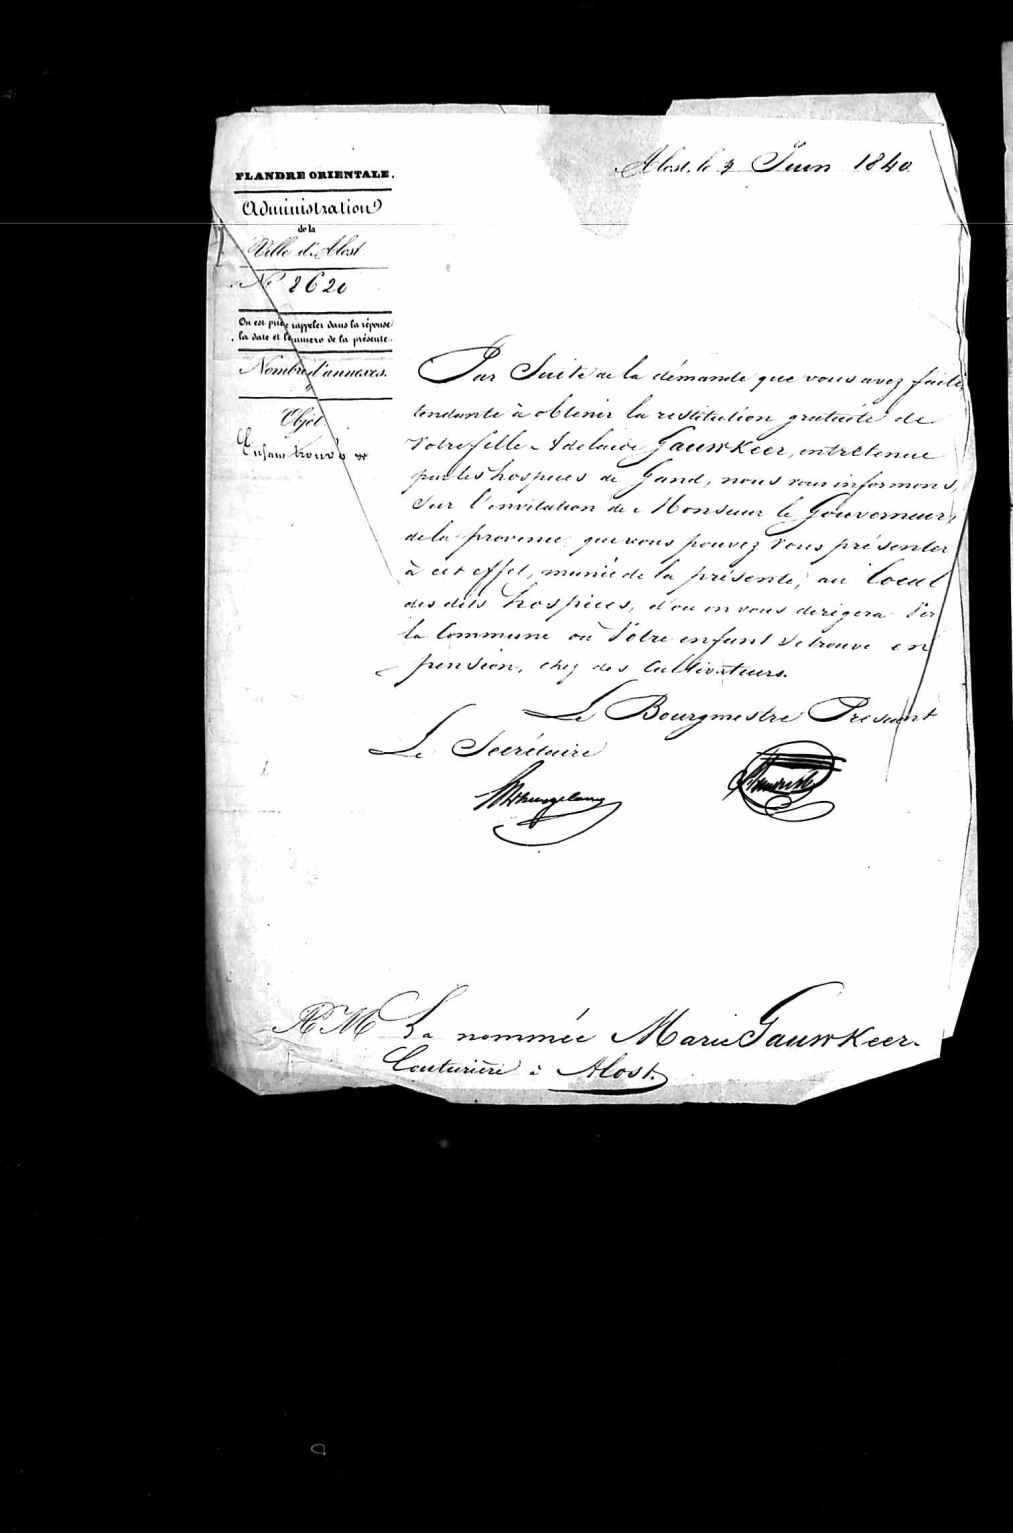 Alost, le 3 Juin 1840
FLANDRE ORIENTALE.
Administration
de la
Ville d'Alost
N° 2620
On est prié rappeler dans la réponse
la date et le numero de la présente.
Nombre d'annexes.
Objet
Enfans trouvés
Par Suite de la démande que vous avez faite
tendante à obtenir la restitution gratuite de
votre fille Adelaide Gauwkeer, entretenue
par les hospices de Gand, nous vous informons,
Sur l'invitation de Monsieur le Gouverneur,
de la province que vous pouvez vous présenter
à cet effet, munie de la présente, au local
des dits hospices, d'ou on vous dirigera Vers
la Commune où Votre enfant Se trouve en
pension, chez des Cultivateurs.
Le Bourgmestre Président
Le Secrétaire
A M La nommée Marie Gauwkeer.
Couturière à Alost.